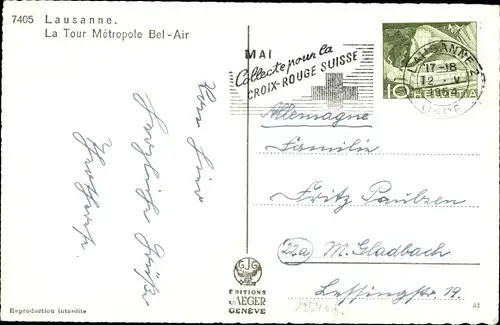 7405 Lausanne.
La Tour Métropole Bel-Air
MAI
Collecte pour la
CROIX-ROUGE SUISSE
LAUSANNE 2
17-18
12. V
1954
10 HELVETIA
Von hier
herzliche Grüße
Allemagne
Familie
Fritz Paulzen
22a M. Gladbach
Lessingstr. 19.
EDITIONS
JAEGER
GENÈVE
Reproduction interdite
52